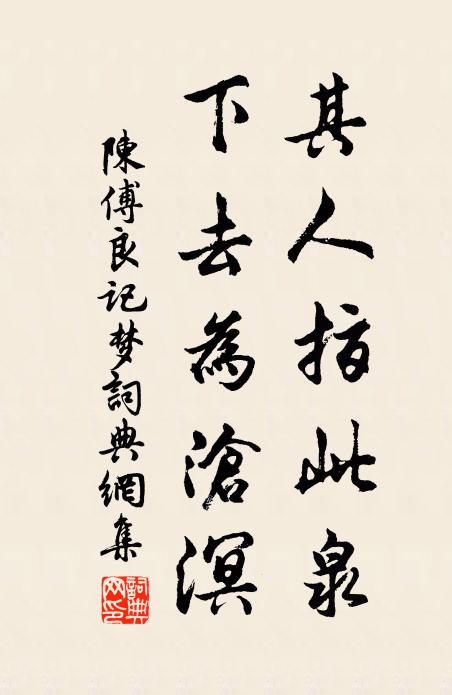 其人指此泉
下去為滄溟
陳傅良記梦詞典網集
詞典网印